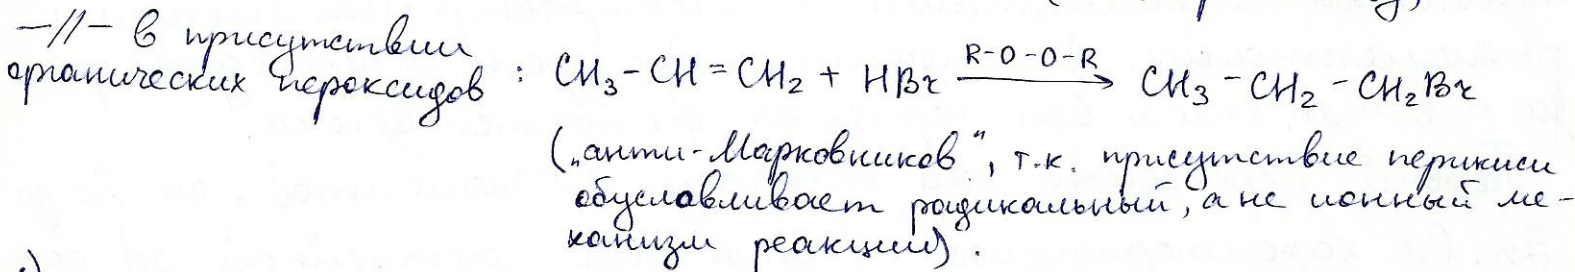 —//— в присутствии
органических пероксидов : CH₃-CH=CH₂ + HBr R-O-O-R → CH₃-CH₂-CH₂Br
(„анти-Марковников“, т.к. присутствие перикиси
обуславливает радикальный, а не ионный ме-
ханизм реакции).